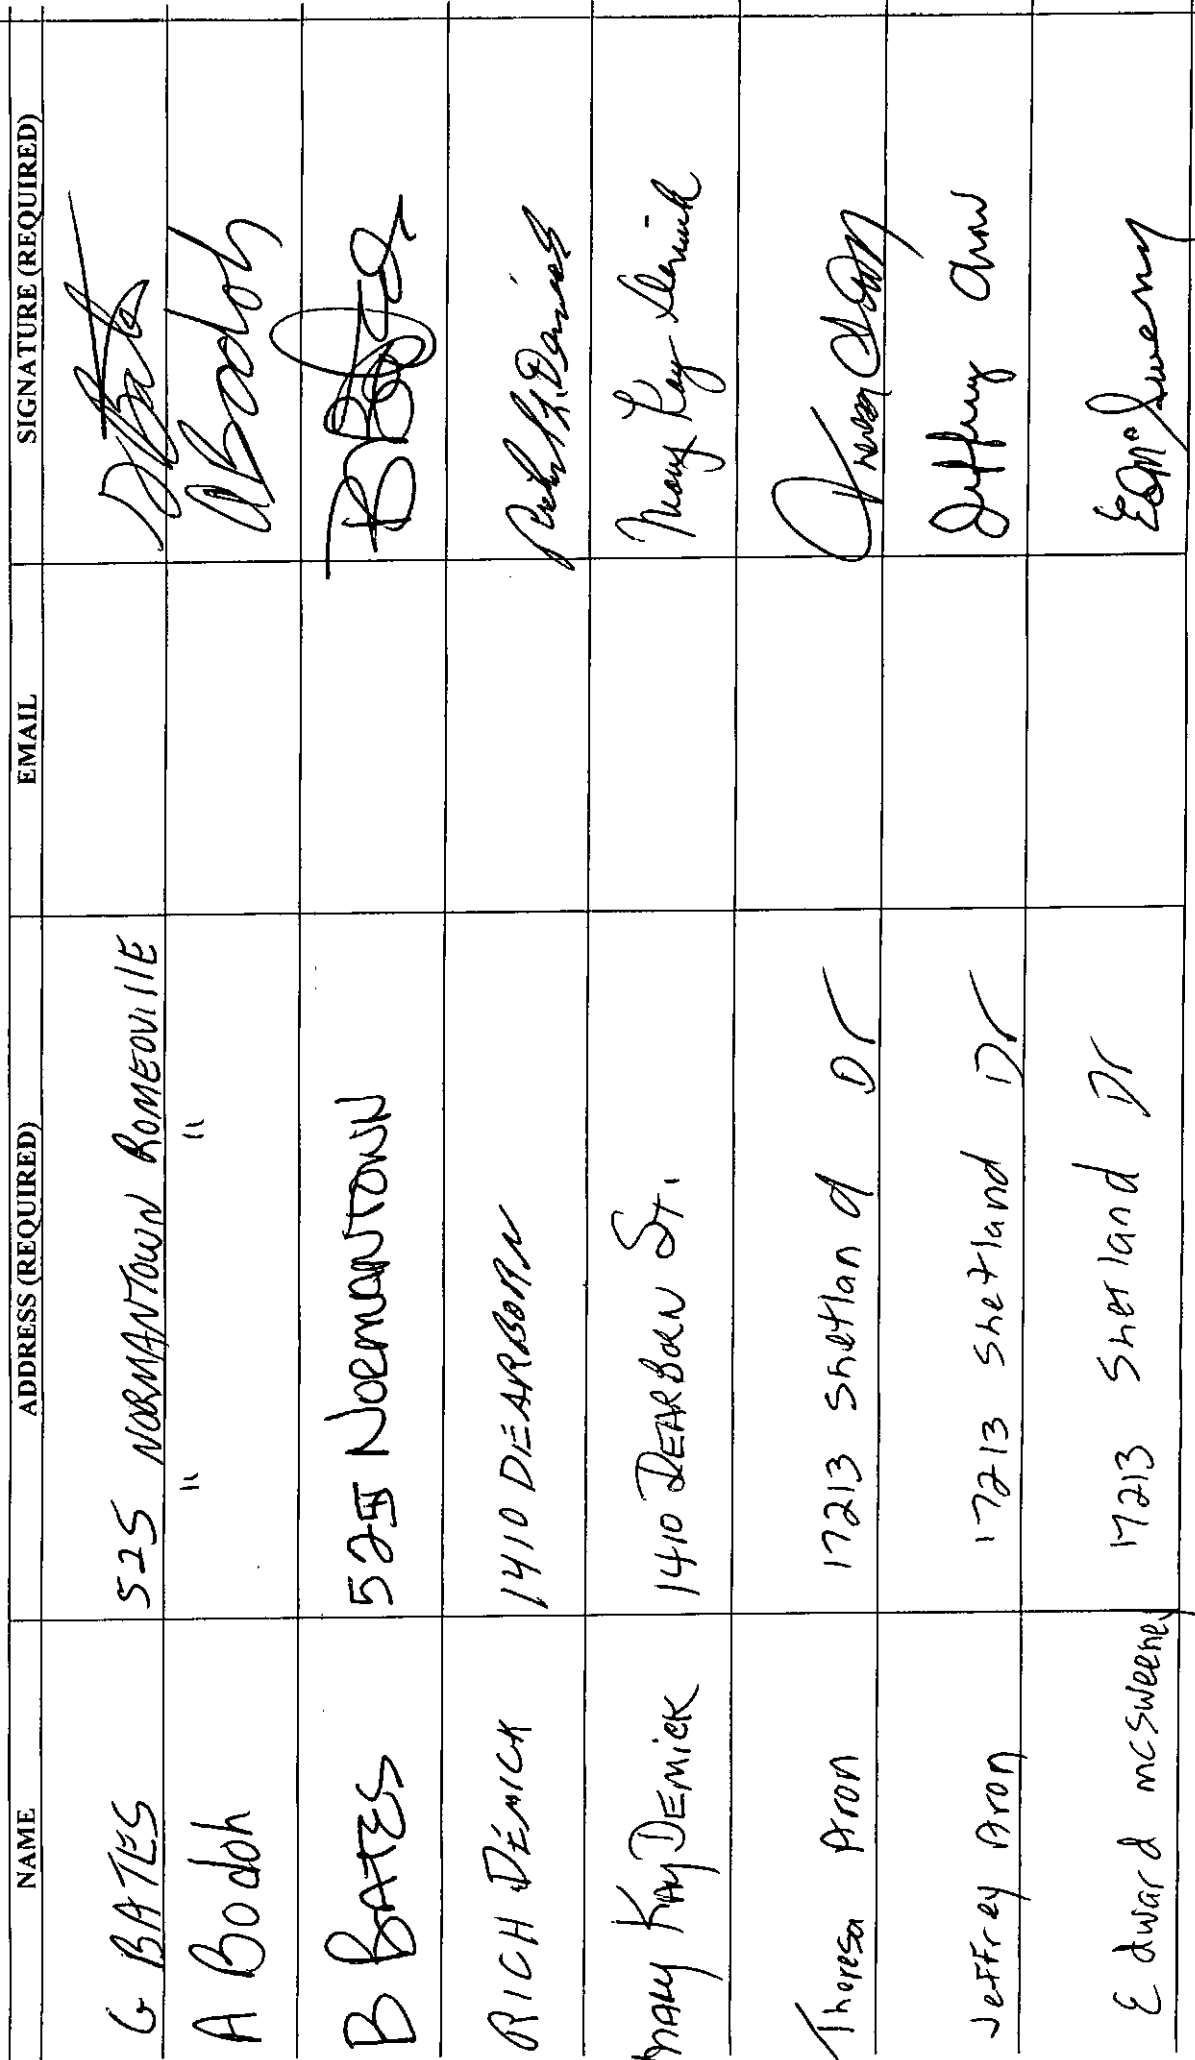 NAME ADDRESS (REQUIRED) EMAIL SIGNATURE (REQUIRED)
G BATES 525 NORMANTOWN ROMEOVIllE
A Bodoh " " ABodoh
B BATES 525 NORMANTOWN
RICH DEMICK 1410 DEARBORN
MARY KAY DEMICK 1410 DEARBORN ST. Mary Kay Demick
Theresa Aron 17213 Shetland Dr Theresa Aron
Jeffrey Aron 17213 Shetland Dr Jeffrey Aron
Edward mcsweeney 17213 Shetland Dr